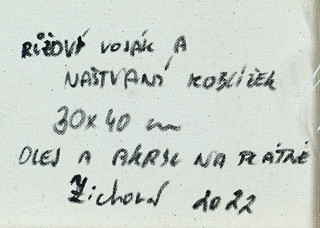 RŮŽOVÝ VOJÁK A
NAŠTVANÍ KOBLÍŽEK
30x40 cm
OLEJ A AKRYL NA PLÁTNĚ
2022